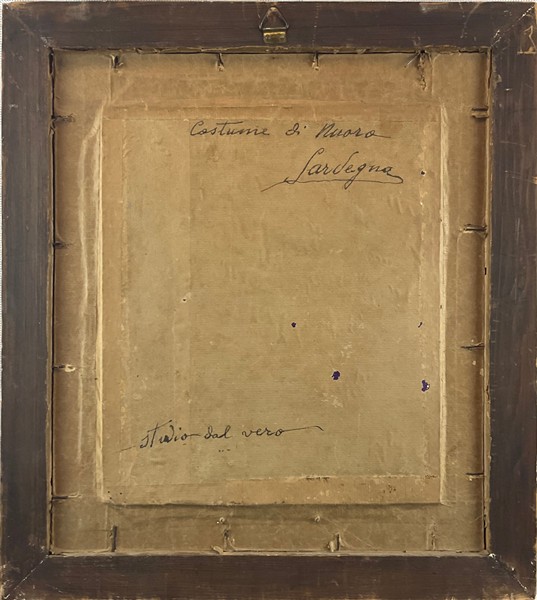 Costume di Nuoro
Sardegna
studio dal vero